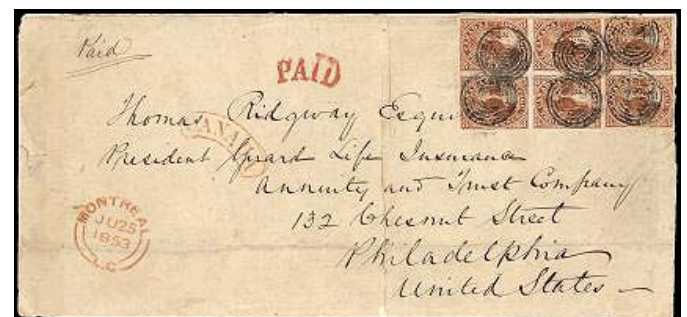 Paid
PAID
Thomas Ridgway Esqu
CANADA
President Girard Life Insurance
Annuity and Trust Company
132 Chesnut Street
Philadelphia
United States
MONTREAL
JU 25
1853
L.C